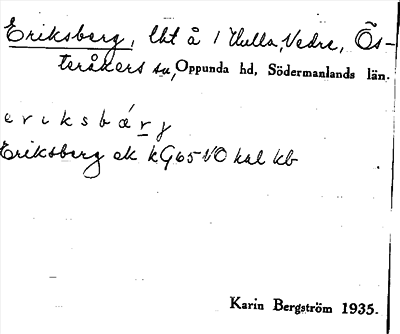 Eriksberg, lht å 1 Hulla, Vedre, Ös-
teråkers sn, Oppunda hd, Södermanlands län.
eriksbárj
Eriksberg ek kG65 NO hal kb
Karin Bergström 1935.